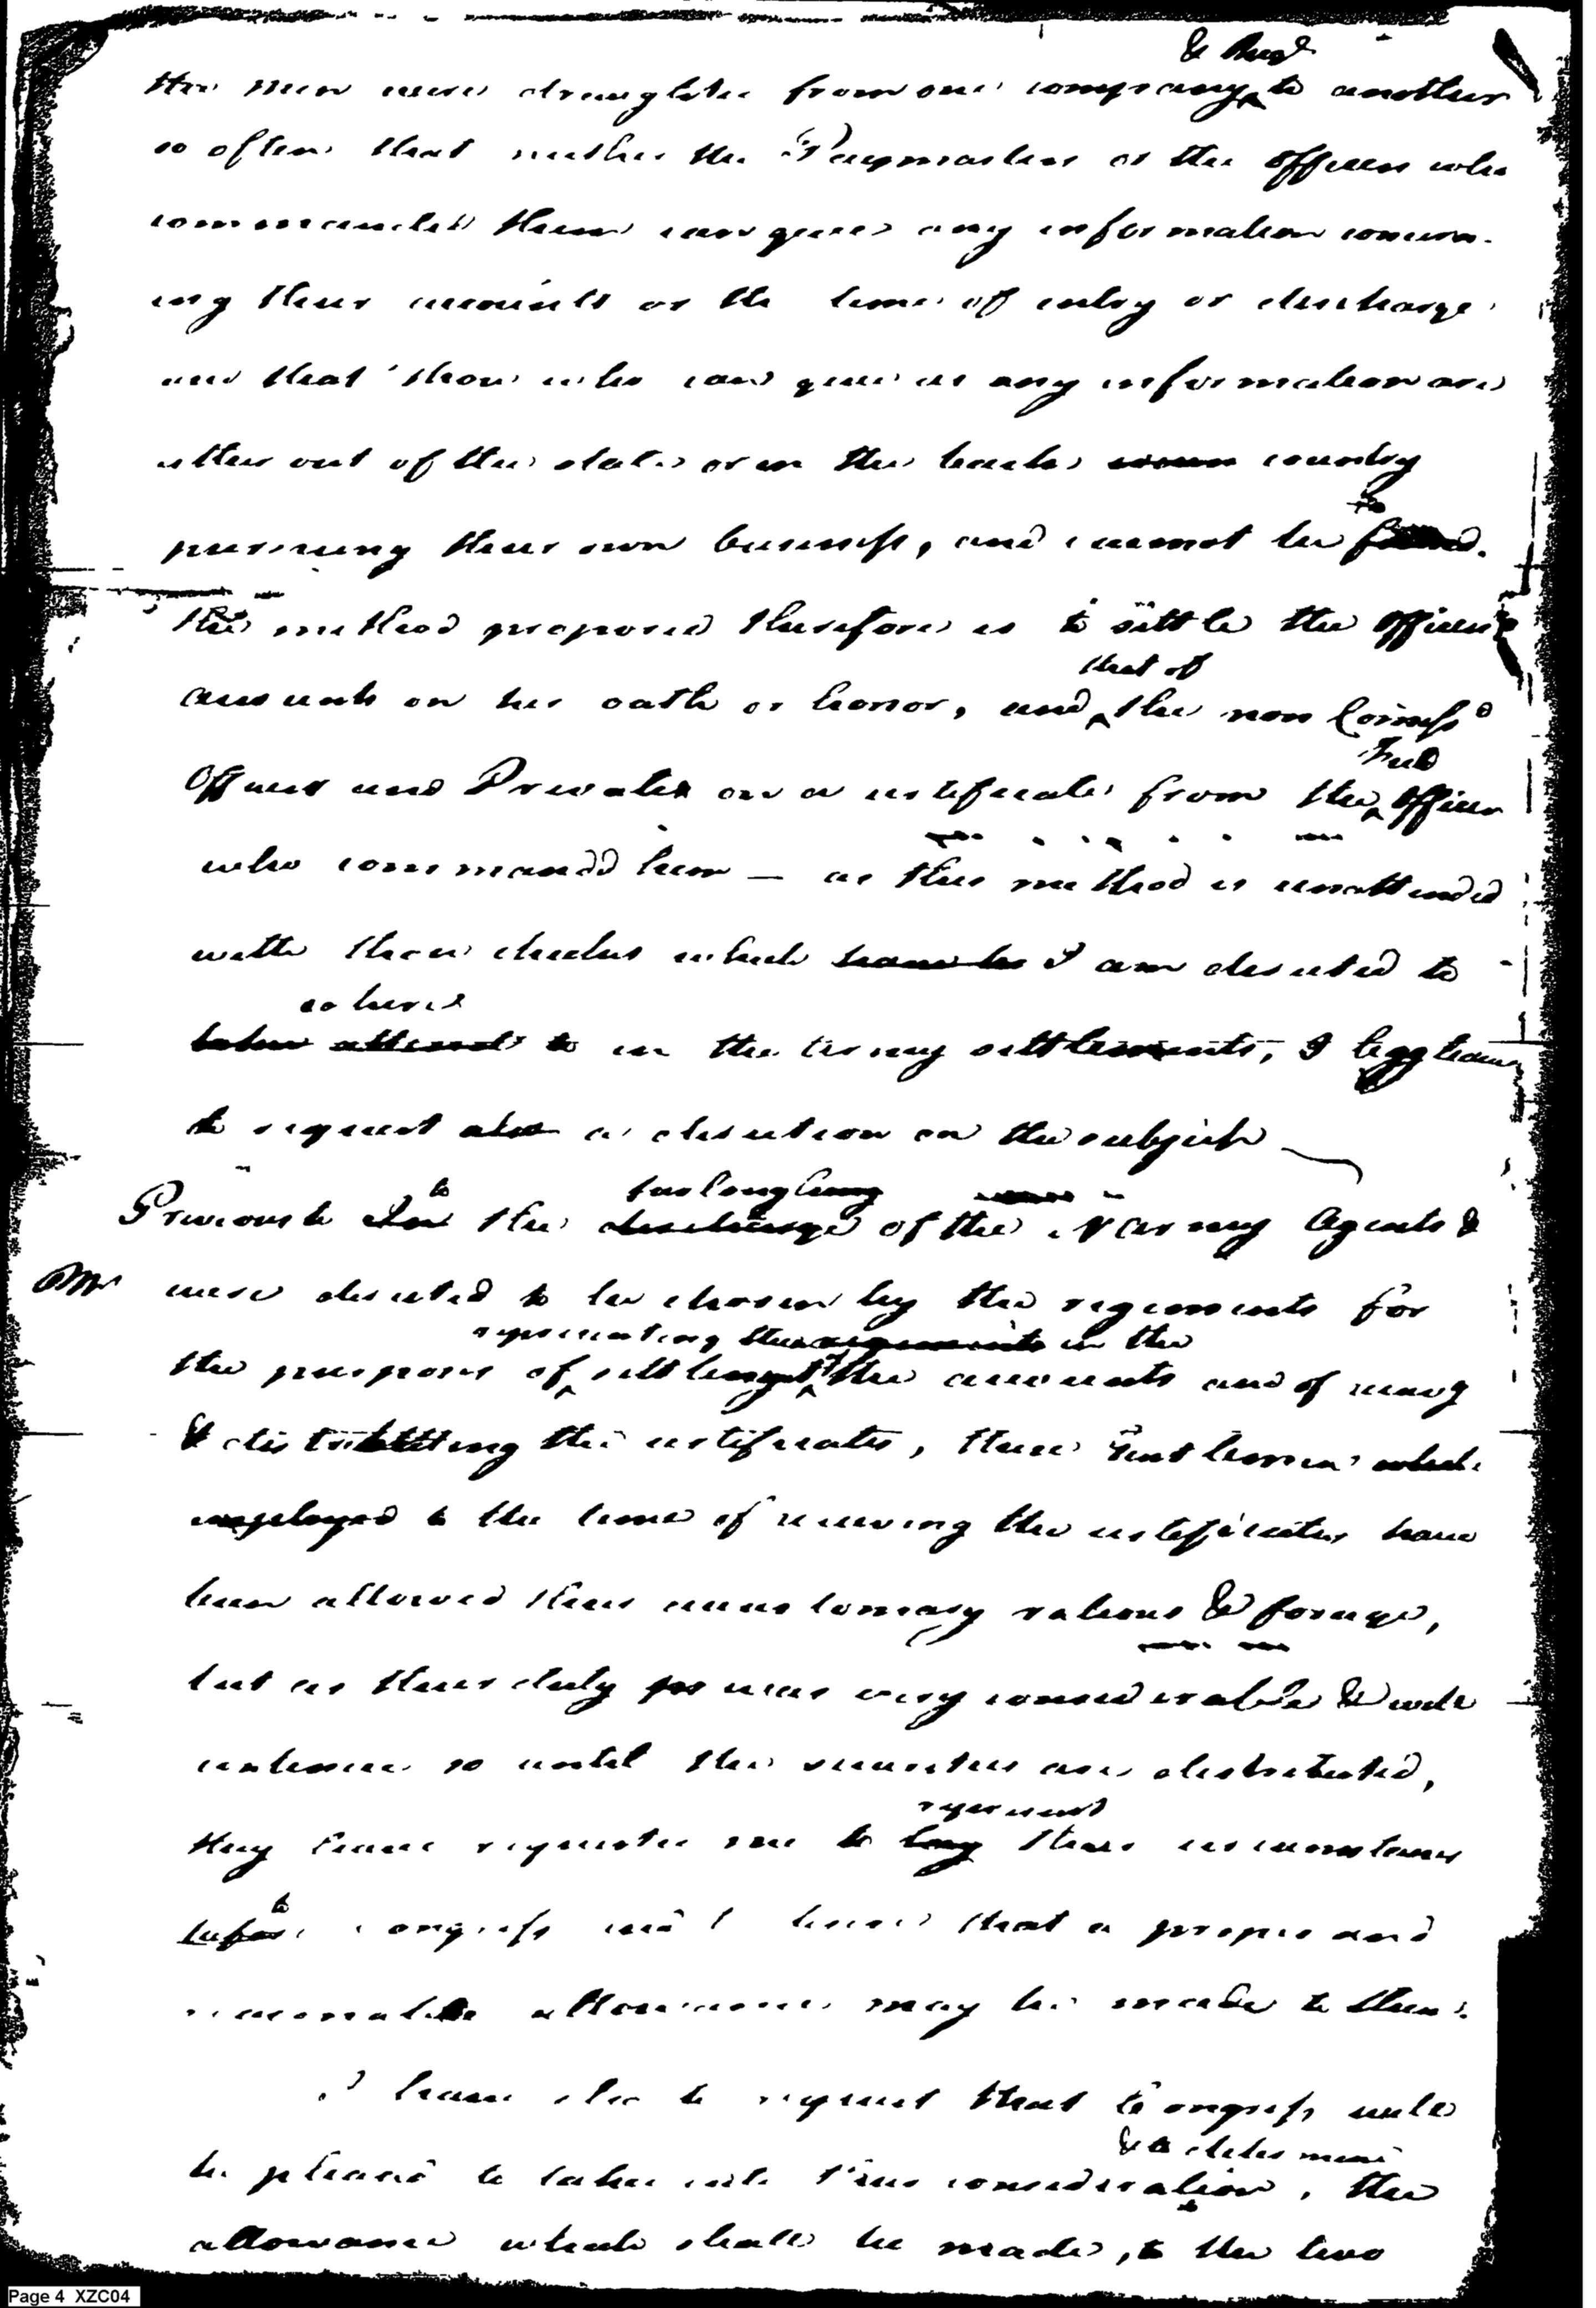 & Regt
the men were draughted from one company to another
so often that neither the Paymasters or the Officers who
commanded them can give any information concern-
ing their accounts or the time of entry or discharge
and that those who can give us any information are
either out of the state or in the back country
pursuing their own business, and cannot be found.
The method proposed therefore is to settle the Officers
that of
accounts on his oath or honor, and the non Comissd
Field
Officers and Privates on a certificate from the Officer
who commandd him — as this method is unattended
with those checks which have be I am directed to
adhere
take attend to in the army settlements, I begg leave
to request also a direction on the subject
to furloughing
Previous to the discharge of the Army Agents
were directed to be chosen by the regiments for
representing the regiments in the
the purpose of settlement of the accounts and of receivg
& distributing the certificates, these Gentlemen which
employed to the time of receiving the certificates have
been allowed their customary rations & forage,
but as their duty was very considerable & will
continue so until the securities are distributed,
represent
they have requested me to lay their circumstances
to
before Congress and I hope that a proper and
reasonable allowance may be made to them.
I have also to request that Congress will
& to determine
be pleased to take into their consideration, the
allowance which shall be made, to the two
Page 4 XZC04